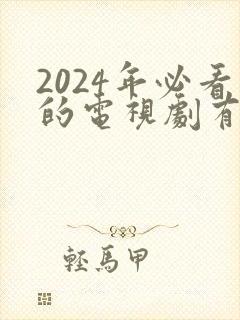 2024年必看
的電視劇有
輕馬甲